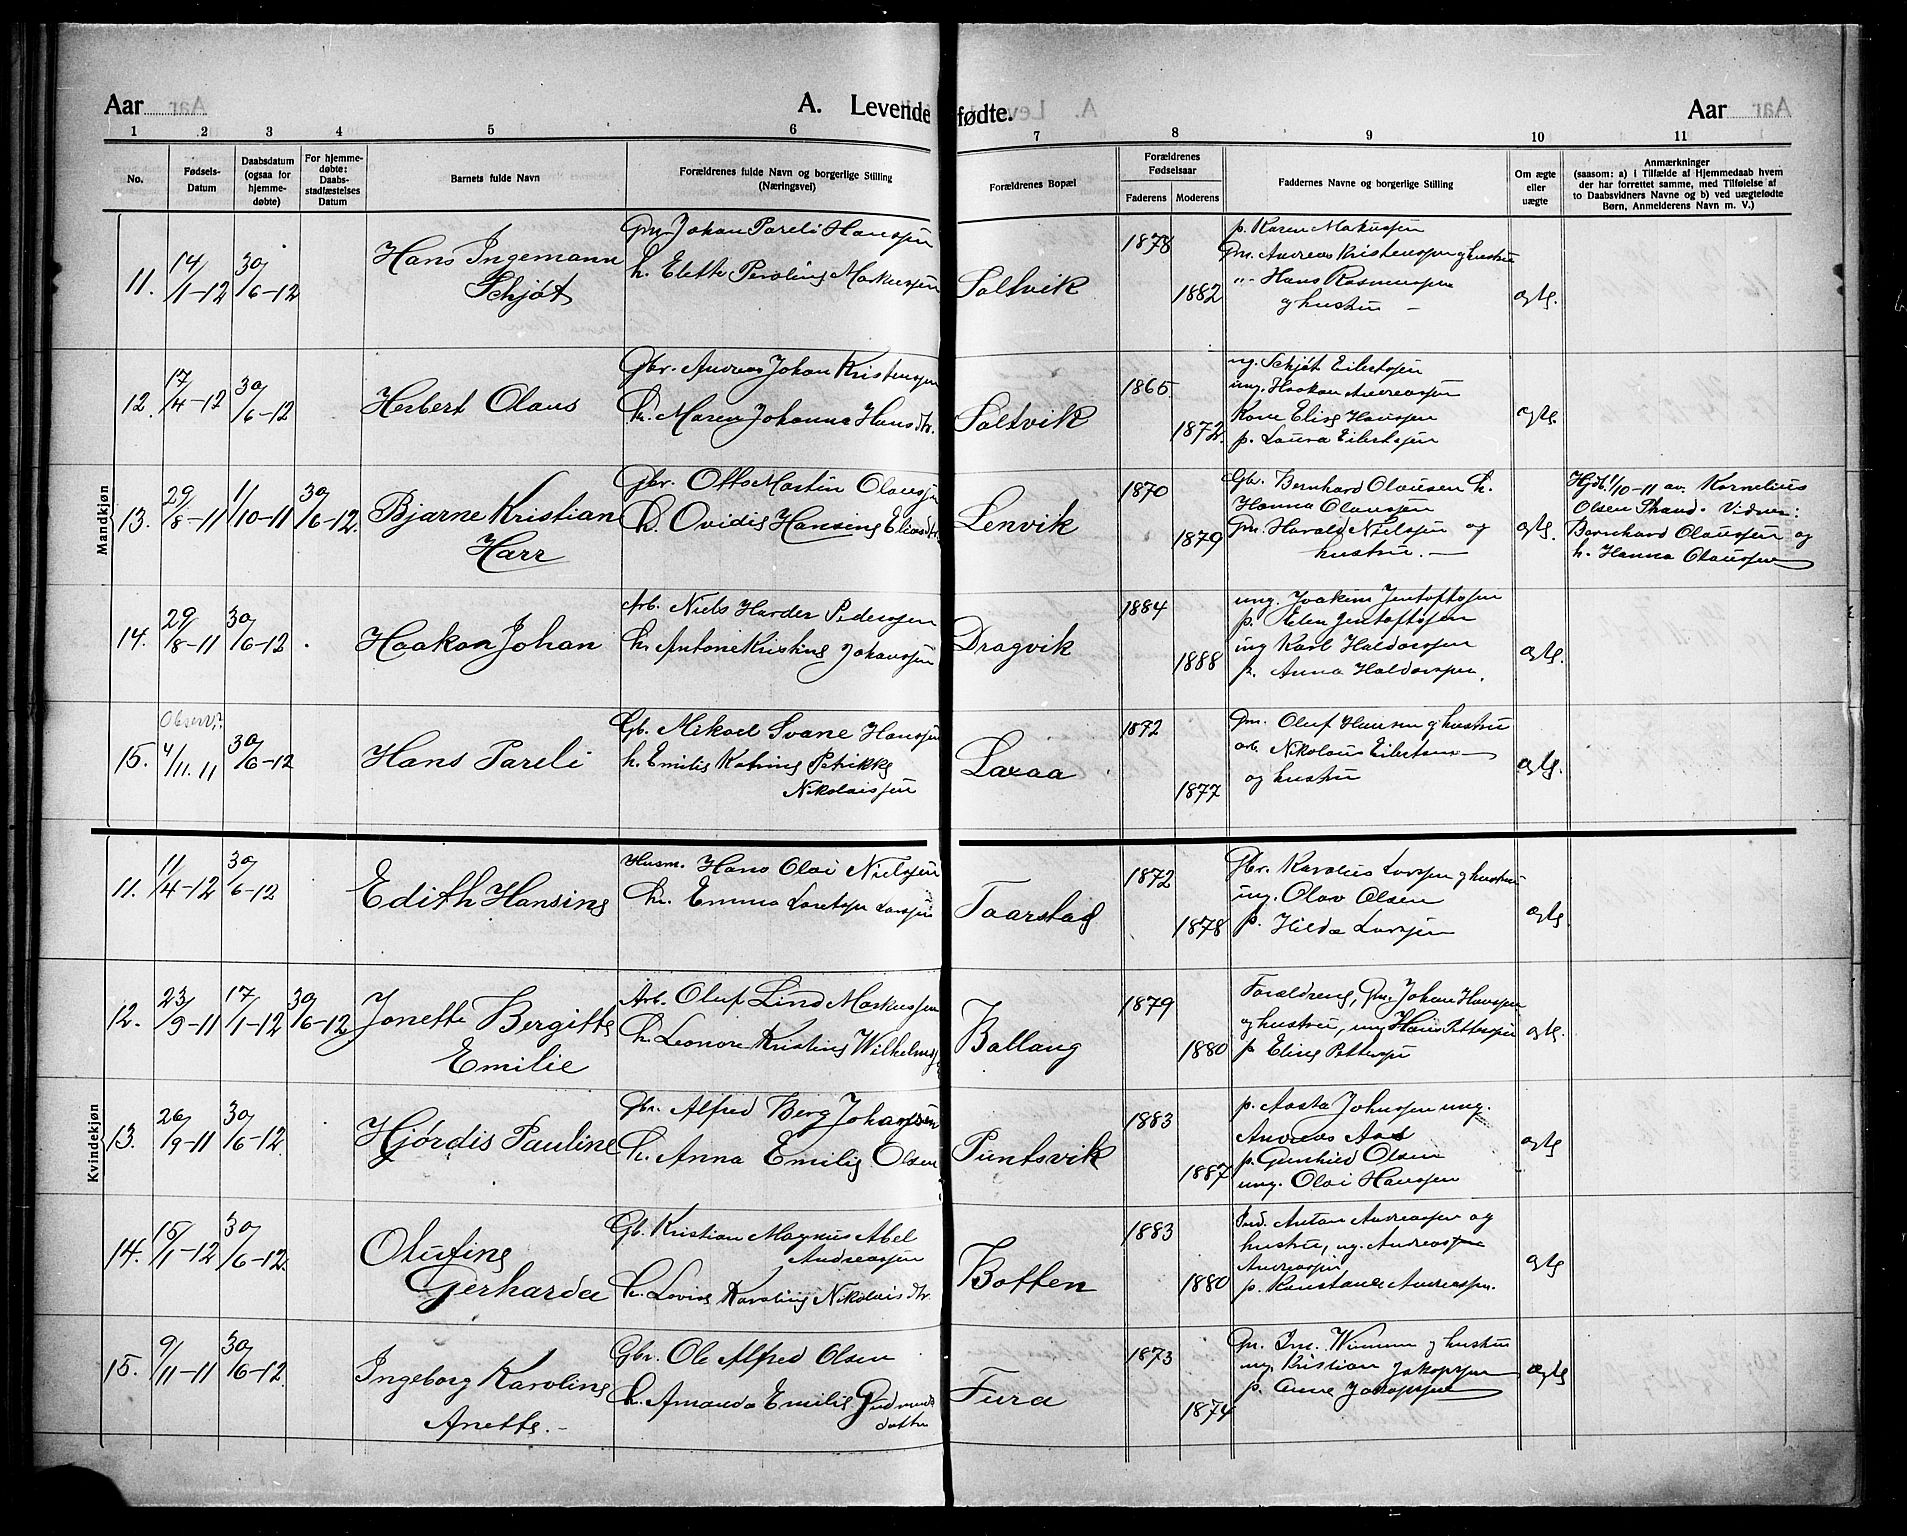 Aar
A. Levendefødte.
Aar
1 2 3 4 5 6 7 8 9 10 11
No.
Fødsels-
Datum
Daabsdatum
(ogsaa for
hjemme-
døbte)
For hjemme-
døbte:
Daabs-
stadfæstelses
Datum
Barnets fulde Navn
Forældrenes fulde Navn og borgerlige Stilling
(Næringsvei)
Forældrenes Bopæl
Forældrenes
Fødselsaar
Faderens Moderens
Faddernes Navne og borgerlige Stilling
Om ægte
eller
uægte
Anmærkninger
(saasom: a) i Tilfælde af Hjemmedaab hvem
der har forrettet samme, med Tilføielse af
to Daabsvidners Navne og b) ved uægtefødte
Børn, Anmelderens Navn m. V.)
Mandkjøn
11.
14/1-12
30/6-12
Hans Ingemann
Schjøt
Gm. Johan Pareli Hanssen
h. Elette Peroline Markussen
Saltvik
1878
1882
p. Karen Markussen
Gm. Andreas Kristenssen og hustru
"- Hans Rasmussen
og hustru -
ægte.
12.
17/4-12
30/6-12
Herbert Olaus
Gbr. Andreas Johan Kristenssen
h. Maren Johanna Hansdtr.
Saltvik
1865
1872.
ug. Schjøt Eilertsen
ung. Haakon Andreassen
Kone Elise Hanssen
p. Laura Eilertsen
ægte.
13.
29/8-11
1/10-11
30/6-12.
Bjarne Kristian
Harr
Gbr. Otto Martin Olaussen
h. Ovidie Hansine Eliasdtr.
Lenvik
1870
1879
Gbr. Bernhard Olausen h.
Hanna Olaussen
Gm. Harald Nielssen og
hustru. -
ægte.
Hjdb. 1/10-11 av. Kornelius
Olsen Strand. Vidner:
Bernhard Olaussen og
h. Hanna Olaussen
14.
29/8-11
30/6-12
Haakon Johan
Arb. Niels Harder Pederssen
h. Antone Kristine Johanssen
Dragvik
1884
1888
ung. Joakim Jentoftsen
p. Elen Jentoftsen
ung Karl Haldorssen
p. Anna Haldorssen.
ægte.
15.
Observ.?
4/11.11
30/6-12
Hans Pareli
Gb. Mikael Svane Hanssen
h. Emilie Katrine Petrikke
Nikolaissen
Laxaa
1872
1877
Gm. Oluf Hansen og hustru
arb. Nikolaus Eilertsen
og hustru
ægte.
Kvindekjøn
11.
11/4-12
30/6-12
Edith Hansine
Husm. Hans Olai Nielssen
h. Emma Larssen
Taarstad
1872
1878
Gbr. Karolius Larssen og hustru
ung. Olav Olsen
p. Hilda Larssen
ægte
12.
23/9-11
17/1-12
30/6-12
Jonette Bergitte
Emilie
Arb. Oluf Lind Markussen
h. Leonore Kristine Wilhelms
Ballang
1879
1880
Forældrene, Gm. Johan Hanssen
og hustru, ung Hans Petterssen
p Eline Petterssen
ægte.
13.
26/9-11
30/6-12.
Hjørdis Pauline
Gbr. Alfred Berg Johanssen
h. Anna Emilie Olsen
Puntsvik
1883
1887
p. Aasta Johnssen ung.
Andreas Aas
p. Gunhild Olsen
ung. Olai Hanssen
ægte
14.
15/1-12
30/6-12.
Olufine
Gerharda
Gb. Kristian Magnus Abel
Andreassen
h. Lovise Karoline Nikolaisdtr.
Botten
1883
1880
Ind. Anton Andreassen og
hustru, ug. Andreas
Andreassen
p. Konstanse Andreassen.
ægte
15.
9/11-11
30/6-12.
Ingeborg Karoline
Anette. -
Gbr. Ole Alfred Olsen
h. Amanda Emilie Gudmunds
datter
Fura
1873
1874
Gm. Wimmer og hustru
ug. Kristian Jakopssen
p. Anne Jakopssen
ægte